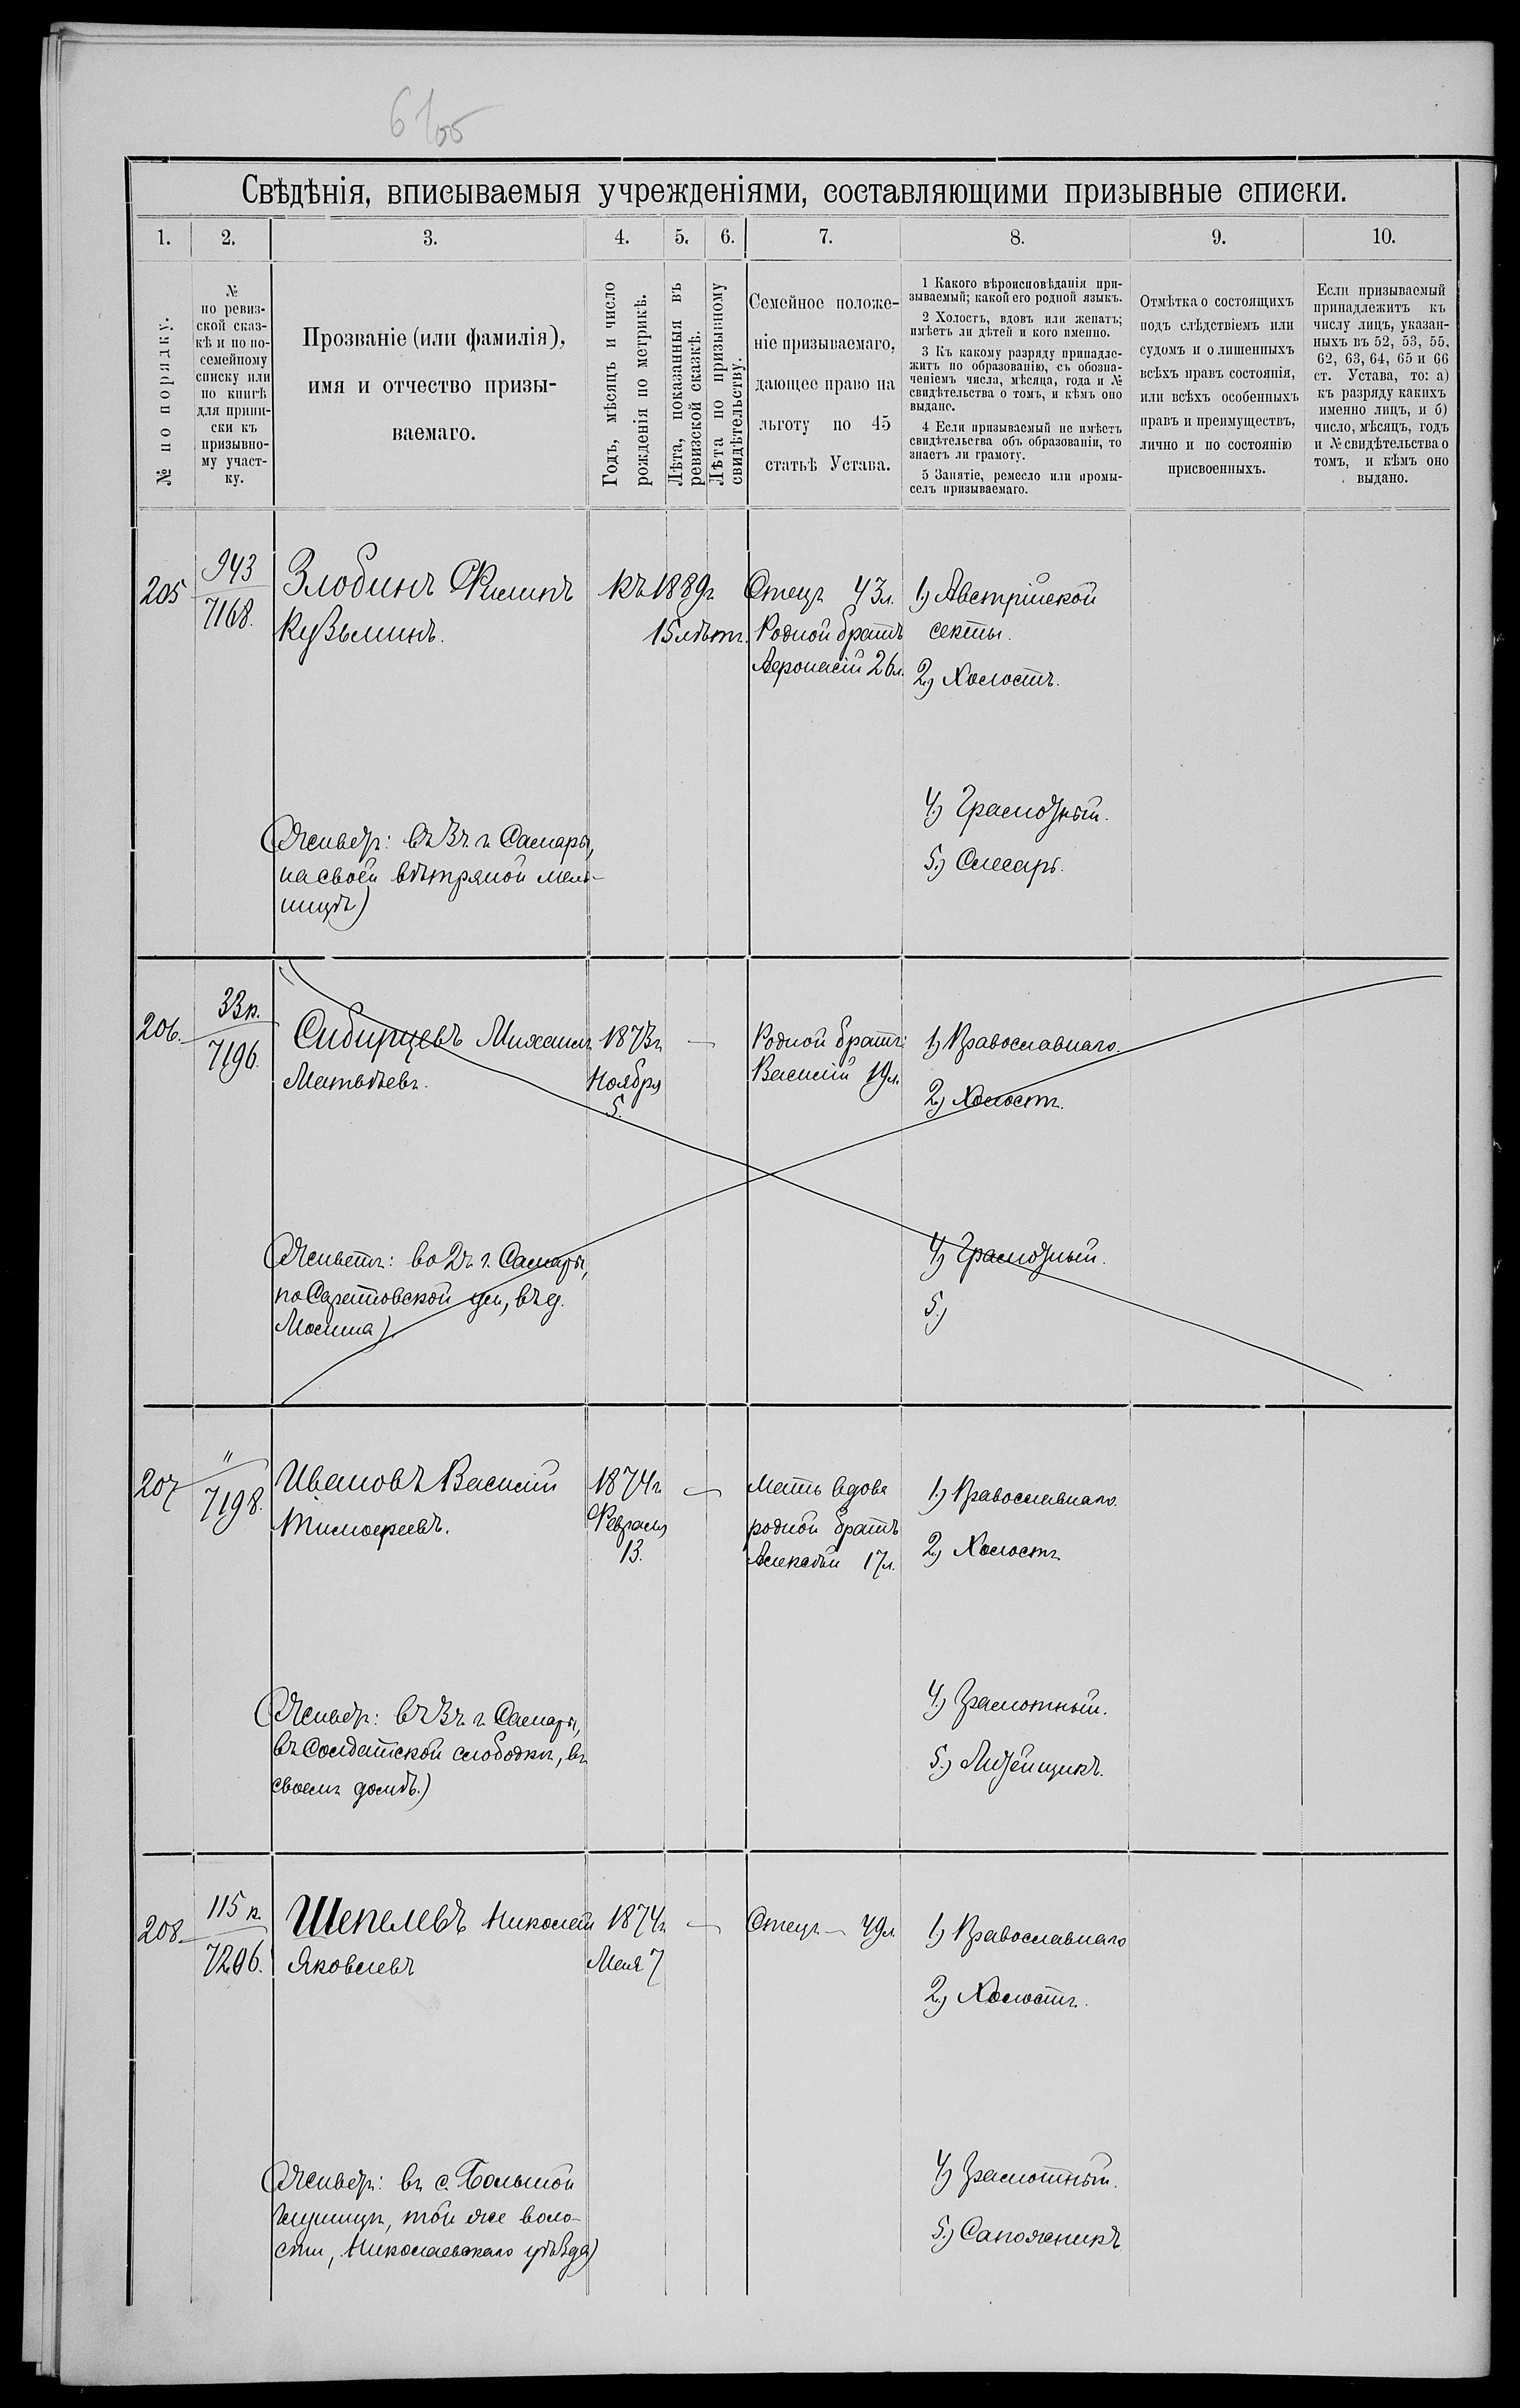 Свѣдѣнія, вписываемыя учрежденіями, составляющими призывные списки.
1. 2. 3. 4. 5. 6. 7. 8. 9. 10.
№ по порядку.
№
по ревиз-
ской сказ-
кѣ и по по-
семейному
списку или
по книгѣ
для припи-
ски къ
призывно-
му участ-
ку.
Прозваніе (или фамилія),
имя и отчество призы-
ваемаго.
Годъ, мѣсяцъ и число
рожденія по метрикѣ.
Лѣта, показанныя въ
ревизской сказкѣ.
Лѣта по призывному
свидѣтельству.
Семейное положе-
ніе призываемаго,
дающее право на
льготу по 45
статьѣ Устава.
1 Какого вѣроисповѣданія при-
зываемый; какой его родной языкъ.
2 Холостъ, вдовъ или женатъ;
имѣетъ ли дѣтей и кого именно.
3 Къ какому разряду принадле-
житъ по образованію, съ обозна-
ченіемъ числа, мѣсяца, года и №
свидѣтельства о томъ, и кѣмъ оно
выдано.
4 Если призываемый не имѣетъ
свидѣтельства объ образованіи, то
знаетъ ли грамоту.
5 Занятіе, ремесло или промы-
селъ призываемаго.
Отмѣтка о состоящихъ
подъ слѣдствіемъ или
судомъ и о лишенныхъ
всѣхъ правъ состоянія,
или всѣхъ особенныхъ
правъ и преимуществъ,
лично и по состоянію
присвоенныхъ.
Если призываемый
принадлежитъ къ
числу лицъ, указан-
ныхъ въ 52, 53, 55,
62, 63, 64, 65 и 66
ст. Устава, то: а)
къ разряду какихъ
именно лицъ, и б)
число, мѣсяцъ, годъ
и № свидѣтельства о
томъ, и кѣмъ оно
выдано.
205
943
7168.
Злобинъ Филипъ
Кузьминъ.
(Живетъ: въ 3ч. г. Самары,
на своей вѣтряной мель-
ницѣ)
къ 1889г
15 лѣтъ.
Отецъ 43л.
Родной братъ
Афонасій 26л.
1) Австрійской
секты.
2) Холостъ.
4) Грамотный.
5.) Слесарь.
206.
33к.
7196.
Сибирцевъ Михаилъ
Матвѣевъ.
(Живетъ: во 2ч. г. Самары,
по Саратовской ул, въ д.
Мосина).
1873г
Ноября
5.
—
Родной братъ
Василій 19л.
1) Православнаго.
2) Холостъ.
4) Грамотный.
5.)
207
"
7198.
Ивановъ Василій
Тимофеевъ.
(Живетъ: въ 3ч. г. Самары,
въ Солдатской слободкѣ, въ
своемъ домѣ.)
1874г
Февраля
13.
—
Мать вдова
родной братъ
Алексѣй 17л.
1) Православнаго.
2) Холостъ
4.) Грамотный.
5.) Литейщикъ.
208
115 к.
7206.
Шепелевъ Николай
Яковлевъ
(Живетъ: въ с. Большой
Глушицѣ, той же воло-
сти, Николаевскаго уѣзда)
1874г
Мая 7
—
Отецъ — 49л
1) Православнаго
2.) Холостъ.
4) Грамотный.
5.) Сапожникъ